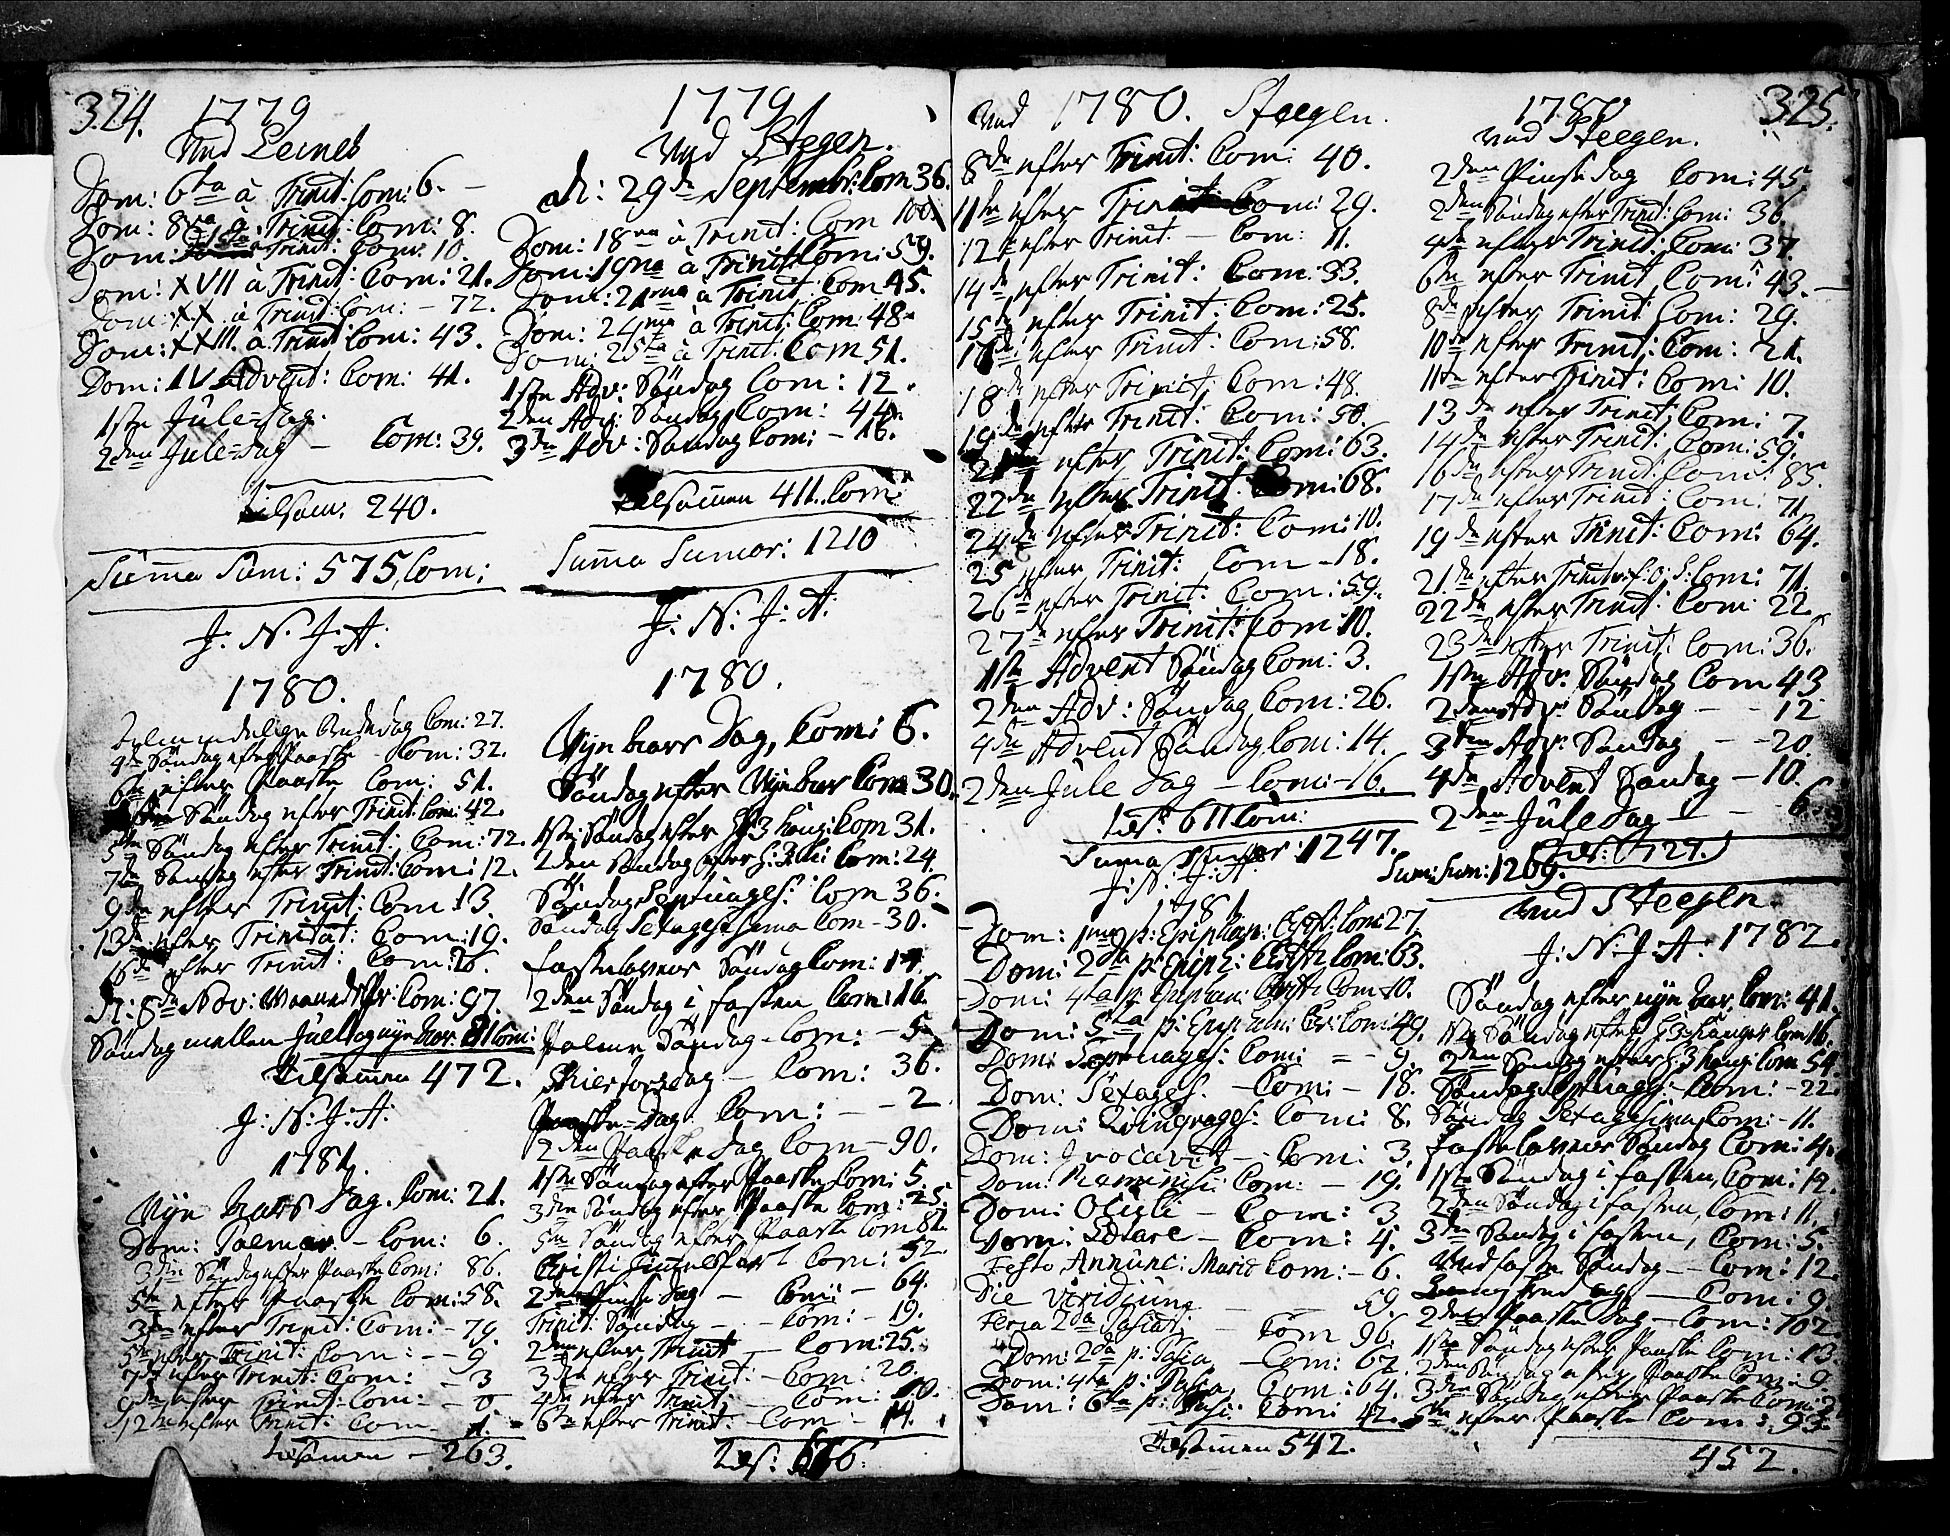 324. 1779
Ved Leines
Dom: 6ta à Trinit: Com: 6. –
Dom: 8va à Trinit: Com: 8.
Dom: à Trinit: Com: 10.
Dom: XVII à Trinit: Com: 21.
Dom: XX à Trinit: Com: – 72.
Dom: XXIII. à Trinit Com: 43.
Dom: IV Advent: Com: 41.
1ste Jule-Dag.
2den Jule-Dag – Com: 39.
tilsam: 240.
Summa Sum: 575 Com:
J: N: J: A:
1780.
Almindelige Bededag Com: 27.
4de Søndag efter Paaske – Com: 32.
6te efter Paaske Com: 51.
Søndag efter Trinit: Com: 42.
5te Søndag efter Trinit: Com: 72.
7de Søndag efter Trinit: Com: 12.
9de efter Trinit: Com: 13.
13de efter Trinitat: Com: 19.
16de efter Trinit: Com: 26.
d: 8de Nov: Com: 97.
Søndag mellem Jul og nyeaar. 81 Com:
tilsammen 472.
J: N: J: A:
1781.
Nye Aars Dag. Com: 21.
Dom: Palmar. – Com: 6.
3die Søndag efter Paaske Com: 86.
5te efter Paaske Com: 58.
3de efter Trinit: Com: – 79.
5te efter Trinit: Com: – – 9
7de efter Trinit: Com: – 3
9de efter Trinit: Com: – 0
12te efter Trinit: Com – 1.
tilsamen – 263.
1779
Ved Stegen.
d: 29de Septembr: Com 36.
Dom: 18va à Trinit: Com 100.
Dom: 19na à Trinit Com: 59.
Dom: 21ma à Trinit Com 45.
Dom: 24ma à Trinit: Com: 48.
Dom: 25ta à Trinit: Com 51.
1ste Adv: Søndag Com: 12.
2den Adv: Søndag Com: 44.
3de Adv: Søndag Com: – 16.
tilsammen 411. Com:
Summa Sumar: 1210
J: N: J: A:
1780.
Nye Aars Dag, Com: 6.
Søndag efter Nyeaar Com 30.
1ste Søndag efter H: 3 kong: Com 31.
2den Søndag efter H: 3 K: Com: 24.
Søndag Septuages: Com 36.
Søndag Sexagesima Com – 30.
Fastelavns Søndag Com: 14.
2den Søndag i Fasten Com: 16.
Palme Søndag – Com: – 5
Skiertorsdag – Com: 36.
Paaske-Dag. Com: – – 2
2den Paaske Dag Com – 90.
1ste Søndag efter Paaske Com: 5.
3de Søndag efter Paaske Com: 25.
5te Søndag efter Paaske Com 82.
Christi Himmelfart Com: 52.
2den Pinse Dag – Com: – 64.
Trinit: Søndag – – Com: – 19.
2den efter Trinit – Com: 25.
3de efter Trinit: – Com: 20.
4de efter Trinit: – Com: 10.
6te efter Trinit: – Com – 14.
tils: 676.
Ved 1780. Steegen.
8de efter Trinit: Com: 40.
11te efter Trinit: Com: 29.
12te efter Trinit – Com: 11.
14de efter Trinit: Com: 33.
15de efter Trinit: Com: 25.
16de efter Trinit: Com: 58.
18de efter Trinit: Com: 48.
19de efter Trinit: Com: 50.
21de efter Trinit: Com: 63.
22de efter Trinit Com: 68.
24de efter Trinit: Com: 10.
25 efter Trinit: Com – 18.
26de efter Trinit: Com: 59.
27de efter Trinit: Com 10.
1ste Advent Søndag Com: 3.
2den Adv: Søndag Com: 26.
4de Advent Søndag Com: 14.
2den Jule Dag – Com: – 16.
tils: 611 Com:
Suma Sumar: 1247.
J: N: J: A:
1781
Dom: 1ma p: Epiphan: Chrst: Com 27.
Dom: 2da p: Epiph: Christi Com: 63.
Dom: 4ta p: Epiphan: Christi Com 10.
Dom: 5ta p: Epiphan: Chr: Com: 49.
Dom: Septuages: Com: – – 9.
Dom: Sexages. – Com: – 18.
Dom: Qvinqvages: Com: 8.
Dom: Invocavit – Com: 3.
Dom: Reminisc: Com: – 19.
Dom: Oculi – Com: 3
Dom: Lætare – Com: 4.
Festo Annunc: Mariæ Com: – 6.
Die Viridium – – 59.
Feria 2da Paschat: – Com 96.
Dom: 2da p: Pasca – Com: 67.
Dom: 4ta p: Pasca Com: 64.
Dom: 6ta p: Pasc: Com: 42.
tilsamen 542.
1780 325.
ved Steegen.
2den Pinse Dag Com: 45.
2den Søndag efter Trinit: Com: 36.
4de efter Trinit: Com: 37.
6te efter Trinit Com: 43. –
8de efter Trinit Com: 29.
10de efter Trinit: Com: 21.
11te efter Trinit: Com: 10.
13de efter Trinit: Com: 7.
14de efter Trinit: Com: 59.
16de efter Trinit: Com: 85.
17de efter Trinit: Com: 71
19de efter Trinit: Com: 64.
21de efter Trinit: Com: 71.
22de efter Trinit: Com: 22.
23de efter Trinit: Com: 36.
1ste Adv: Søndag Com 43
2den Adv: Søndag – – 12
3die Adv: Søndag – – 20.
4de Advent Søndag – 10.
2den Jule Dag – – 6.
tils: 727.
Sum: Sum: 1269.
ved Steegen.
J: N: J: A: 1782.
Søndag efter nye Aar Com: 41.
1ste Søndag efter H: 3 Konger Com 16.
2den Søndag efter H: 3 Kong: Com 54.
Søndag Septuages: Com: – 22.
Søndag Sexagesima Com: – 11.
Fastelavns Søndag Com: 4.
1ste Søndag i Fasten, Com: 12.
2den Søndag i Fasten, Com: 11.
3de Søndag i Fasten, Com: 5.
Midfaste Søndag – Com: 12.
– Com: 9.
2den Paaske Dag – Com: 102.
1ste Søndag efter Paaske Com: 13.
2den Søndag efter Paaske Com: 9
3de Søndag efter Paaske Com: 3
5te efter Paaske Com: 93.
452.